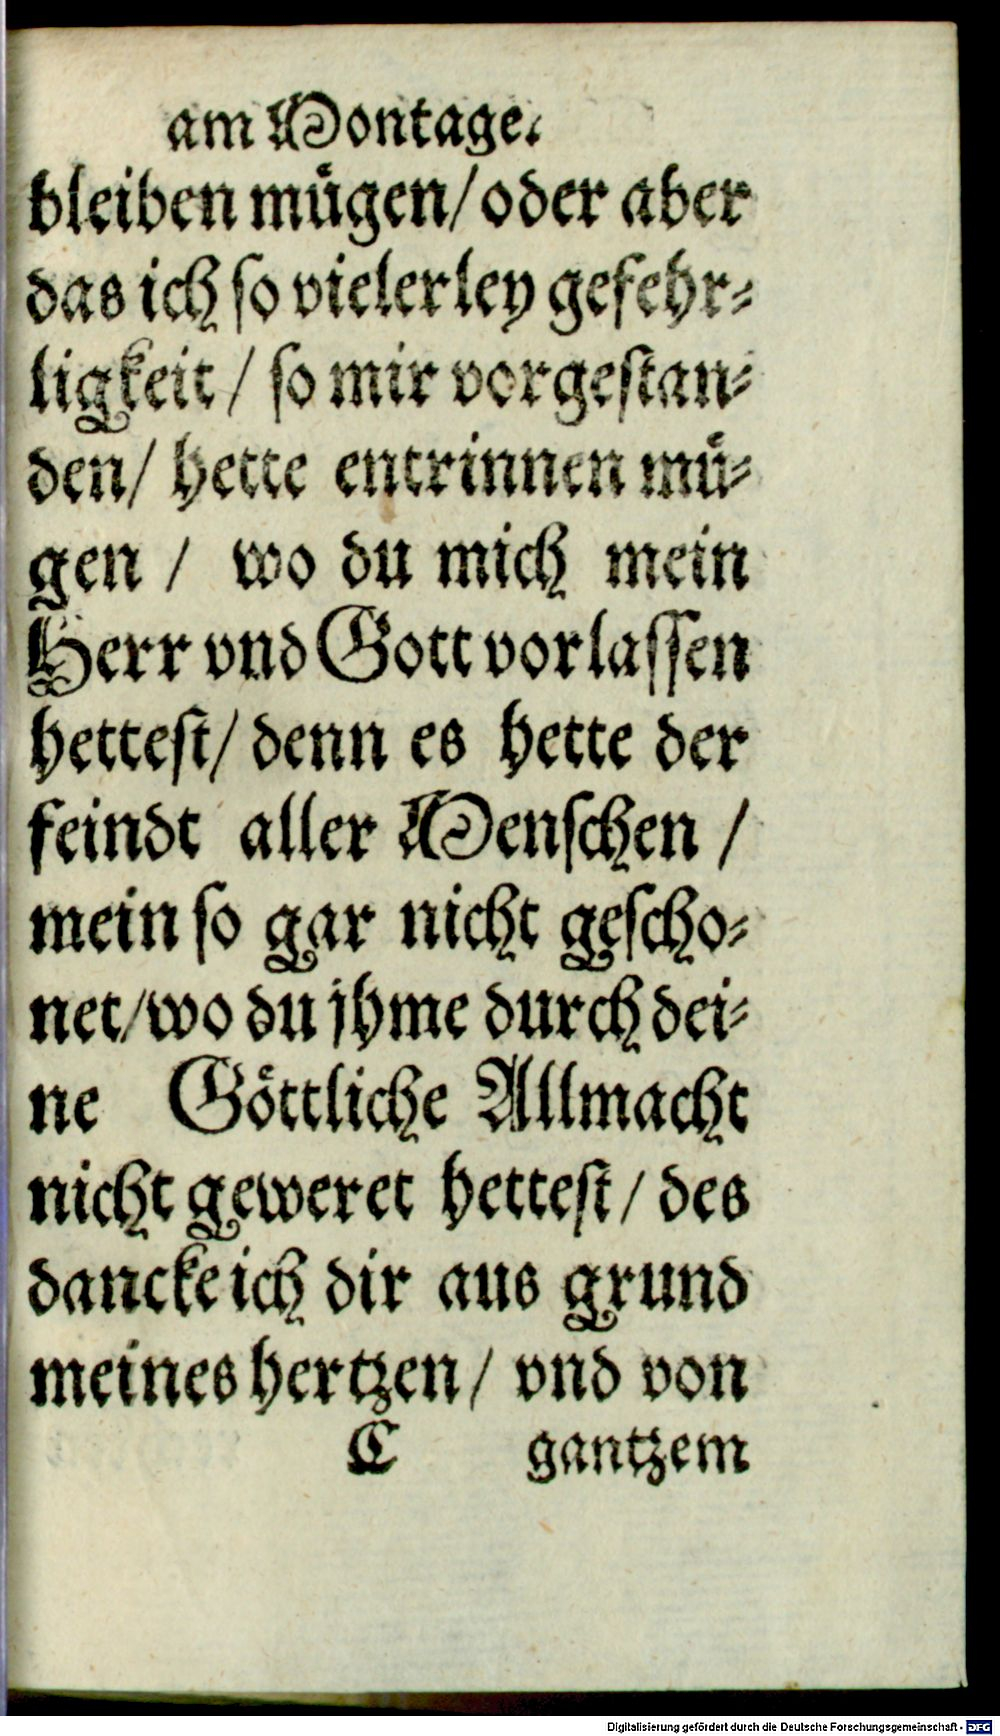 am Montage.
bleiben muͤgen/ oder aber
das ich ſo vielerley gefehr⸗
ligkeit / ſo mir vorgeſtan⸗
den/ hette entrinnen muͤ⸗
gen / wo du mich mein
Herr vnd Gott vorlaſſen
hetteſt/ denn es hette der
feindt aller Menſchen /
mein ſo gar nicht geſcho⸗
net/ wo du jhme durch dei⸗
ne Goͤttliche Allmacht
nicht geweret hetteſt/ des
dancke ich dir aus grund
meines hertzen/ vnd von
C gantzem
Digitalisierung gefördert durch die Deutsche Forschungsgemeinschaft - DFG